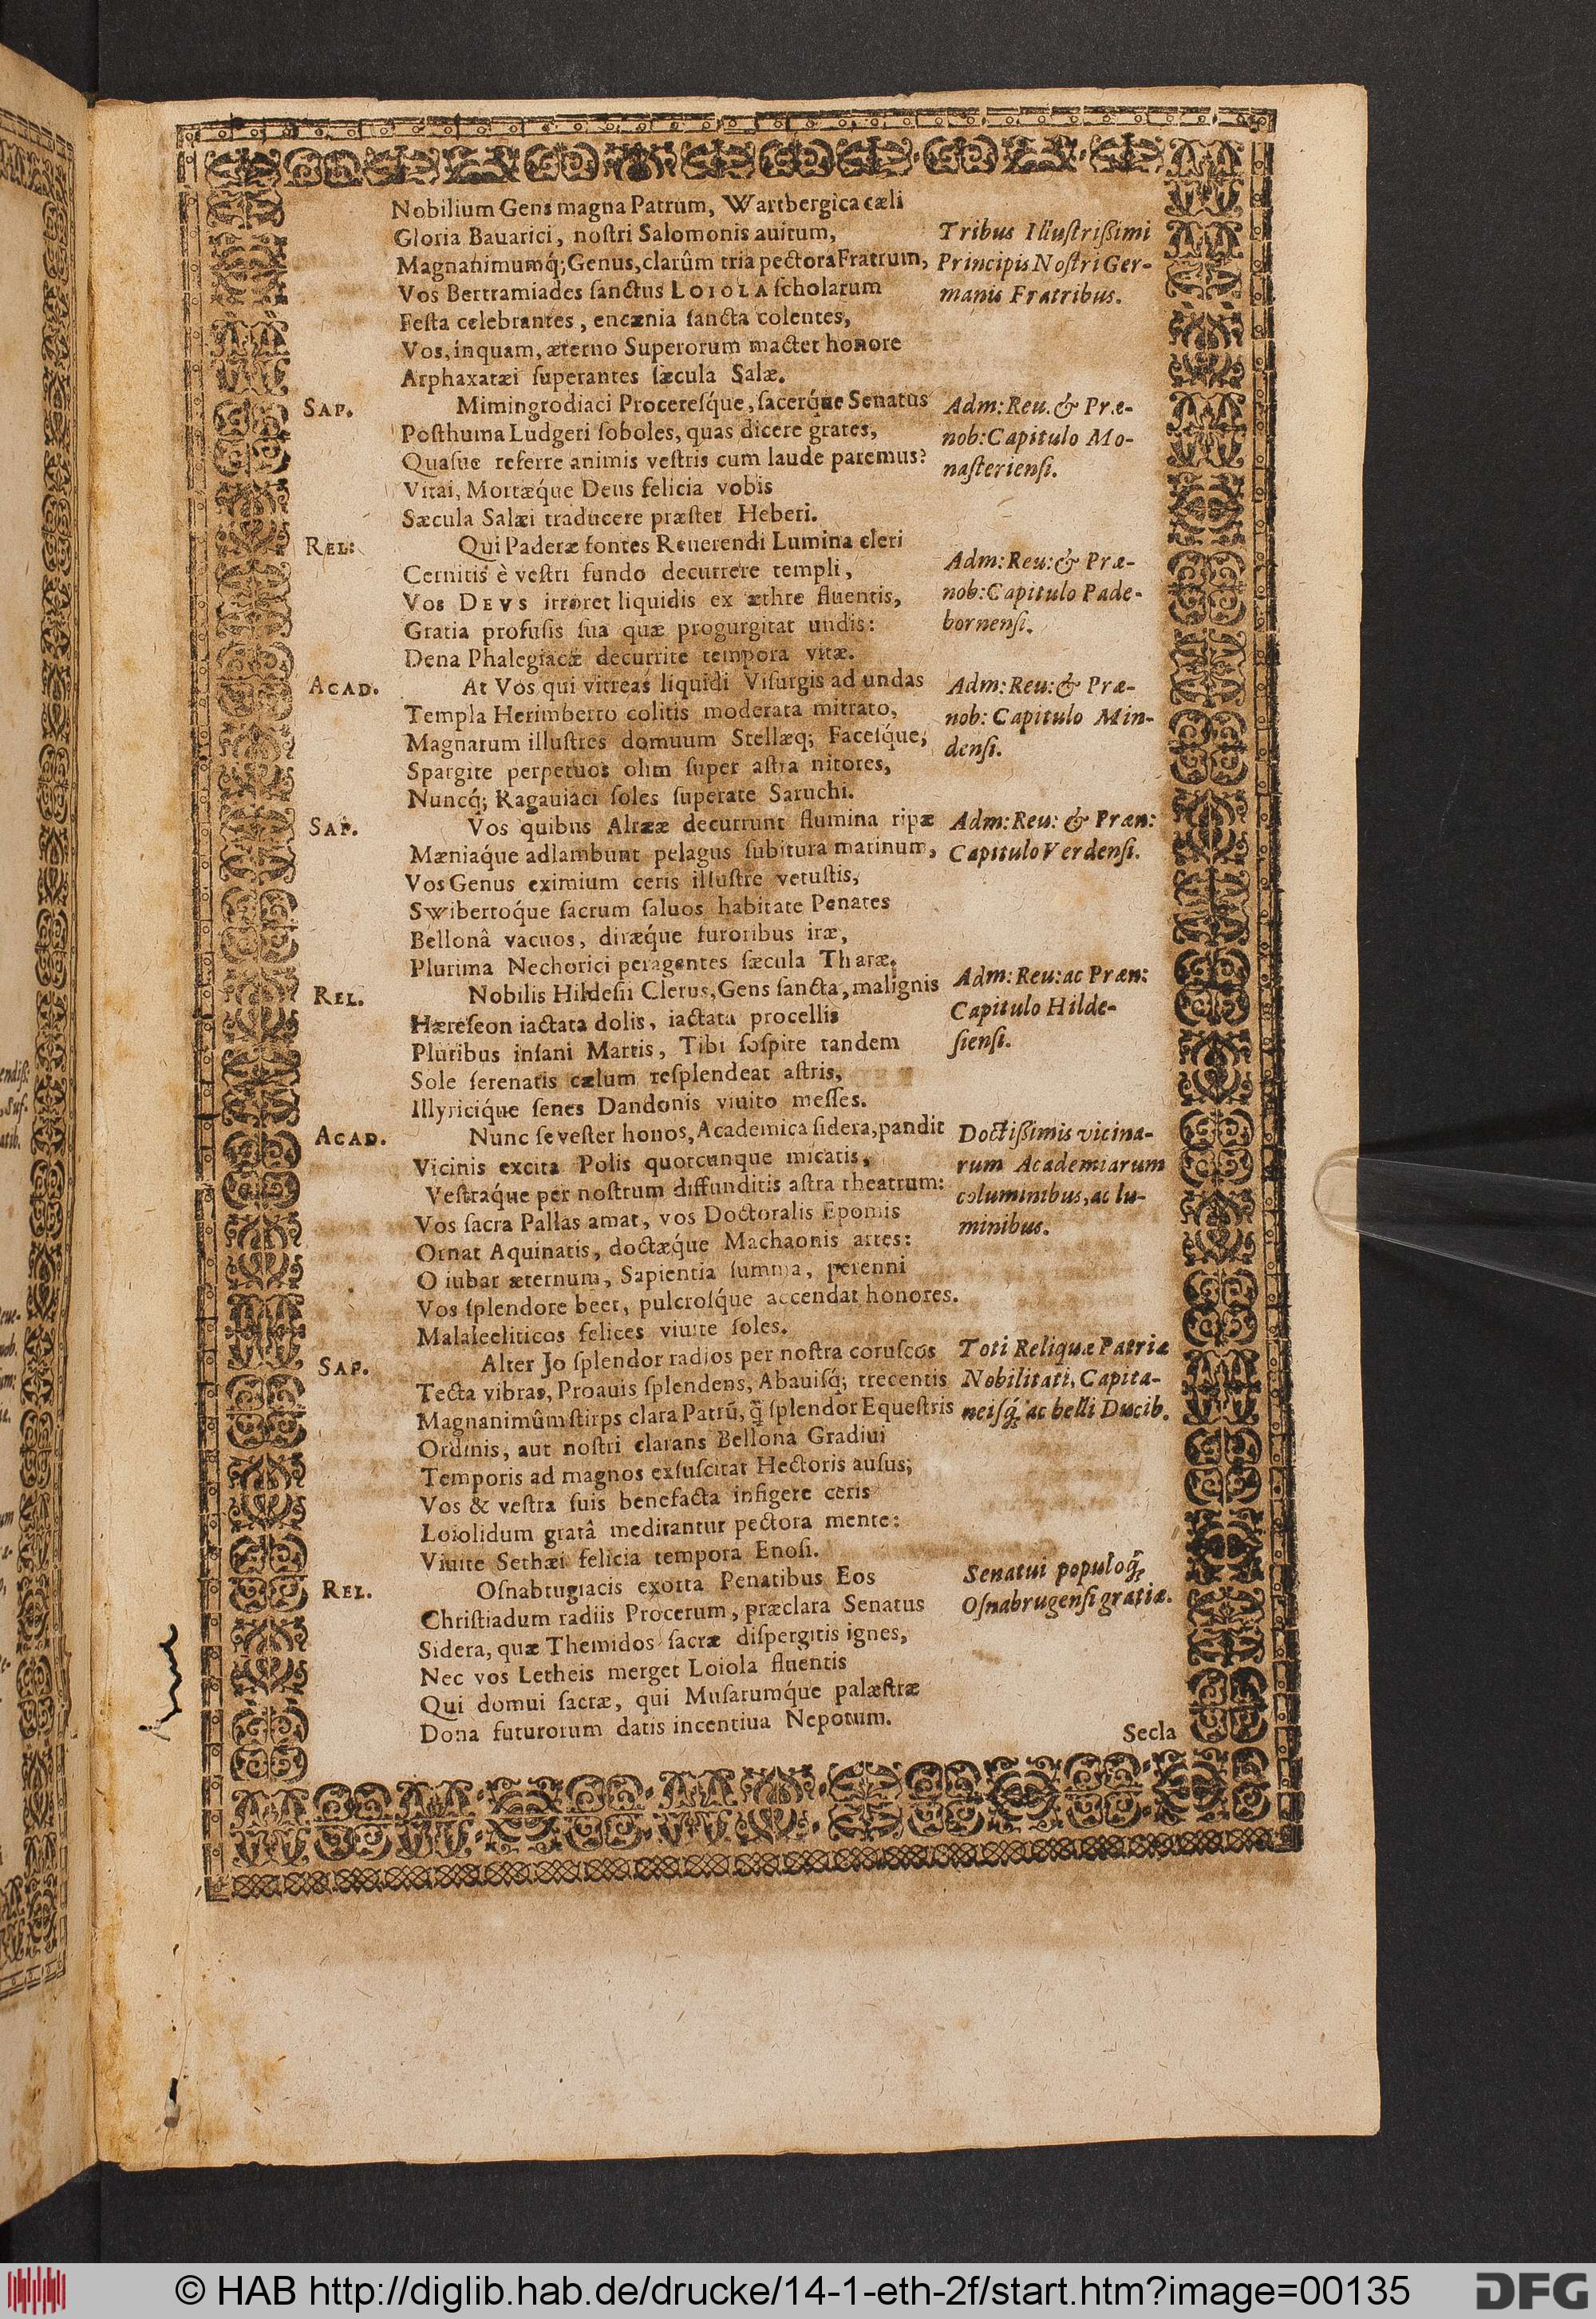 Nobilium Gens magna Patrum, Wartbergica cæli
Gloria Bauarici, noſtri Salomonis auitum,
Magnanimumq́; Genus, clarûm tria pectora Fratrum,
Vos Bertramiades ſanctus LOIOLA ſcholarum
Feſta celebrantes, encænia ſancta colentes,
Vos, inquam, æterno Superorum mactet honore
Arphaxatæi ſuperantes ſæcula Salæ.
Tribus Illuſtriſsimi
Principis Noſtri Ger-
manis Fratribus.
SAP.
Mimingrodiaci Procereſq́ue, ſacerq́ue Senatus
Poſthuma Ludgeri ſoboles, quas dicere grates,
Quaſue referre animis veſtris cum laude paremus?
Vitai, Mortæq́ue Deus felicia vobis
Sæcula Salæi traducere præſtet Heberi.
Adm: Reu. & Præ-
nob: Capitulo Mo-
naſterienſi.
REL:
Qui Paderæ fontes Reuerendi Lumina cleri
Cernitis è veſtri fundo decurrere templi,
Vos DEVS irroret liquidis ex æthre fluentis,
Gratia profuſis ſua quæ progurgitat undis:
Dena Phalegiacæ decurrite tempora vitæ.
Adm: Reu: & Præ-
nob: Capitulo Pade-
bornenſi.
ACAD.
At Vos qui vitreas liquidi Viſurgis ad undas
Templa Herimberto colitis moderata mitrato,
Magnatum illuſtres domuum Stellæq; Faceſq́ue,
Spargite perpetuos olim ſuper aſtra nitores,
Nuncq́; Ragauiaci ſoles ſuperate Saruchi.
Adm: Reu: & Præ-
nob: Capitulo Min-
denſi.
SAP.
Vos quibus decurrunt flumina ripæ
Mæniaq́ue adlambunt pelagus ſubitura marinum,
Vos Genus eximium ceris illuſtre vetuſtis,
Swibertoq́ue ſacrum ſaluos habitate Penates
Bellonâ vacuos, diræq́ue furoribus iræ,
Plurima Nechorici peragentes ſæcula Tharæ.
Adm: Reu: & Præn:
Capitulo Verdenſi.
REL.
Nobilis Hildeſii Clerus, Gens ſancta, malignis
Hæreſeon iactata dolis, iactata procellis
Pluribus inſani Martis, Tibi ſoſpite tandem
Sole ſerenatis cælum reſplendeat aſtris,
Illyriciq́ue ſenes Dandonis viuito meſſes.
Adm: Reu: ac Præn:
Capitulo Hilde-
ſienſi.
ACAD.
Nunc ſe veſter honos, Academica ſidera, pandit
Vicinis excita Polis quotcunque micatis,
Veſtraq́ue per noſtrum diffunditis aſtra theatrum:
Vos ſacra Pallas amat, vos Doctoralis Epomis
Ornat Aquinatis, doctæq́ue Machaonis artes:
O iubar æternum, Sapientia ſumma, perenni
Vos ſplendore beet, pulcroſq́ue accendat honores.
Malaleeliticos felices viuite ſoles.
Doctiſsimis vicina-
rum Academiarum
columinibus, ac lu-
minibus.
SAP.
Alter Jo ſplendor radios per noſtra coruſcos
Tecta vibras, Proauis ſplendens, Abauiſq́; trecentis
Magnanimûm ſtirps clara Patrū, q̃ ſplendor Equeſtris
Ordinis, aut noſtri clarans Bellona Gradiui
Temporis ad magnos exſuſcitat Hectoris auſus;
Vos & veſtra ſuis benefacta infigere ceris
Loiolidum gratâ meditantur pectora mente:
Viuite Sethæi felicia tempora Enoſi.
Toti Reliquæ Patriæ
Nobilitati, Capita-
neiſq́; ac belli Ducib.
REL.
Oſnabrugiacis exorta Penatibus Eos
Chriſtiadum radiis Procerum, præclara Senatus
Sidera, quæ Themidos ſacræ diſpergitis ignes,
Nec vos Letheis merget Loiola fluentis
Qui domui ſacræ, qui Muſarumq́ue palæſtræ
Dona futurorum datis incentiua Nepotum.
Senatui populoq́;
Oſnabrugenſi gratiæ.
Secla
© HAB http://diglib.hab.de/drucke/14-1-eth-2f/start.htm?image=00135
DFG